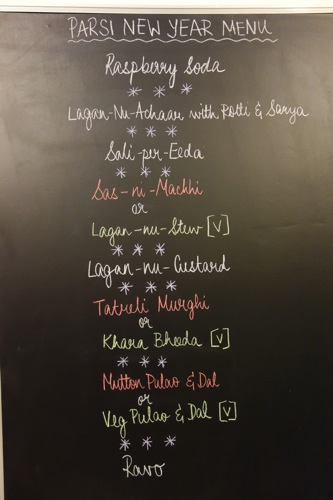 PARSI NEW YEAR MENU
Raspberry Soda
Lagan-Nu-Achaar with Rotli & Sarya
Sali-per-Eeda
Sas-ni-Machhi
or
Lagan-nu-Stew [V]
Lagan-nu-Custard
Tatreli Murghi
or
Khara Bheeda [V]
Mutton Pulao & Dal
or
Veg Pulao & Dal [V]
Ravo